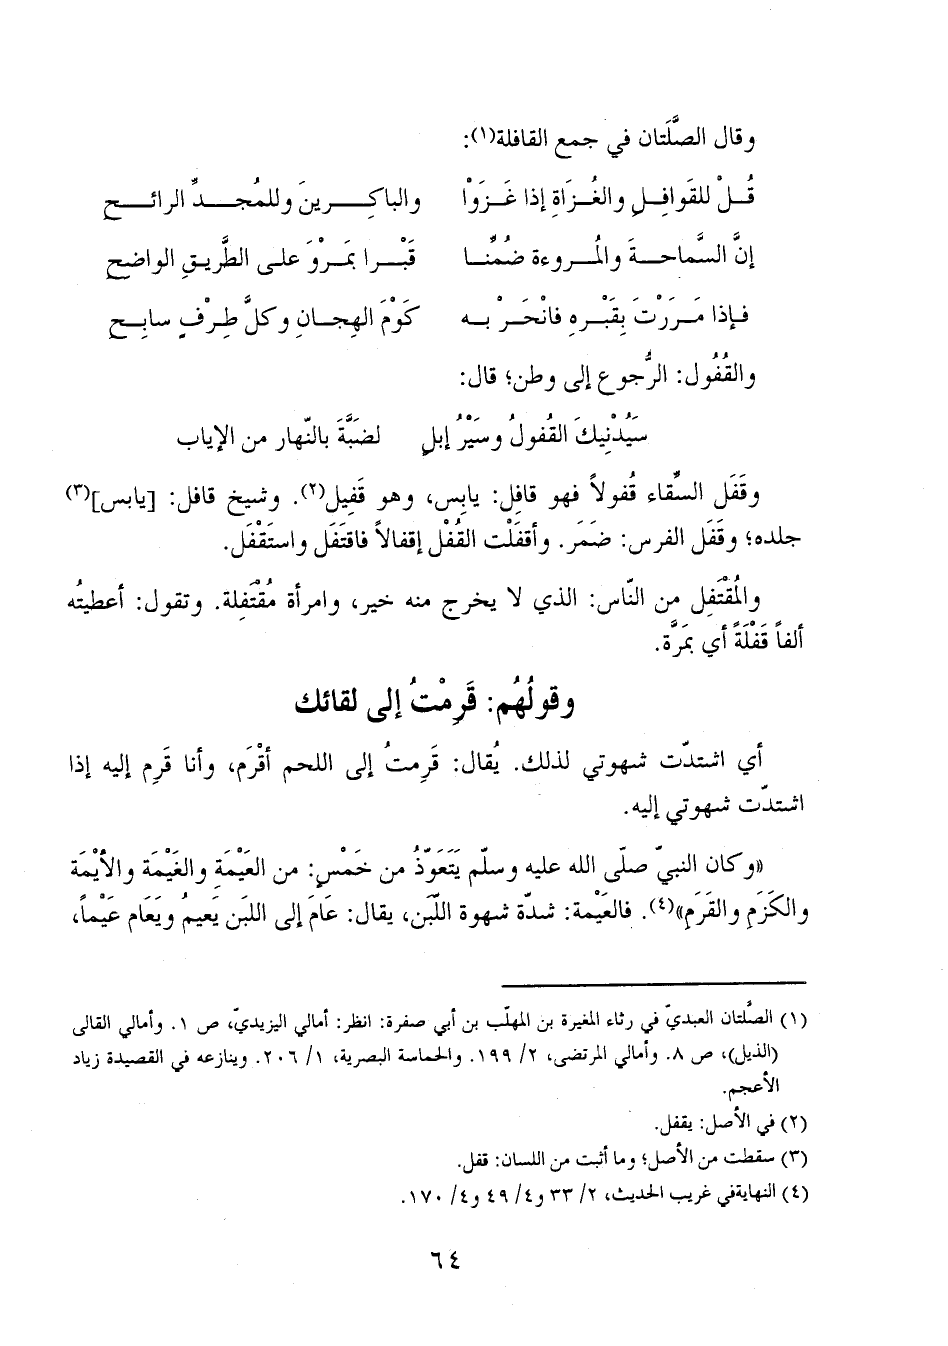 وقال الصَّلَتان في جمع القافلة(١):
قُــلْ للقَوافِـلِ والغُـزَاةِ إذا غَـزَوْا والباكِــــرينَ وللمُجــــدِّ الرائــــح
إنَّ السَّماحـــةَ والمُـــروءة ضُمِّنـــا قَبْـــرا بمَـــرْوَ علـــى الطَّريقِ الواضحِ
فـإذا مَـررْتَ بِقَبْـرِهِ فانْحَـرْ بـه كَوْمَ الهِجـانِ وكلَّ طِـرْفٍ سابِـحِ
والقُفُول: الرُّجوع إلى وطن؛ قال:
سَيُدْنِيكَ القُفولُ وسَيْرُ إبلٍ لضَبَّةَ بالنّهار من الإياب
وقَفَل السِّقاء قُفولاً فهو قافِل: يابِس، وهو قَفِيل(٢). وشيخ قافل: [يابس](٣)
جلده؛ وقَفَل الفرس: ضَمَر. وأقفَلْت القُفْل إقفالاً فاقتَفَل واستَقْفَل.
والمُقْتَفِل من النّاس: الذي لا يخرج منه خير، وامرأة مُقْتَفِلة. وتقول: أعطيتُه
ألفاً قَفْلَةً أي بمَرَّة.
وقولُهُم: قَرِمْتُ إلى لقائك
أي اشتدّت شهوتي لذلك. يُقال: قَرِمتُ إلى اللحم أقْرَم، وأنا قَرِم إليه إذا
اشتدّت شهوتي إليه.
«وكان النبيّ صلّى الله عليه وسلّم يَتَعَوّذُ من خَمْسٍ: من العَيْمَةِ والغَيْمَة والأيْمَة
والكَزَمِ والقَرَمِ»(٤). فالعَيْمة: شدّة شهوة اللّبَن، يقال: عَامَ إلى اللبَن يَعيمُ ويَعَام عَيْماً،
(١) الصَّلتان العبديّ في رثاء المغيرة بن المهلّب بن أبي صفرة: انظر: أمالي اليزيديّ، ص ١. وأمالي القالى
(الذيل)، ص ٨. وأمالي المرتضى، ٢/ ١٩٩. والحماسة البصرية، ١/ ٢٠٦. وينازعه في القصيدة زياد
الأعجم.
(٢) في الأصل: يقفل.
(٣) سقطت من الأصل؛ وما أثبت من اللسان: قفل.
(٤) النهايةفي غريب الحديث، ٢/ ٣٣ و٤/ ٤٩ و٤/ ١٧٠.
٦٤